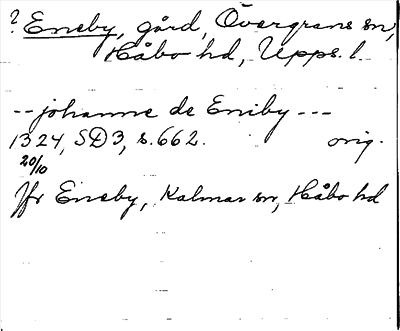 ? Eneby, gård, Övergrans sn,
Håbo hd, Upps. l.
-- johanne de Eniby ---
1324, SD3, s. 662. orig.
20/10
Jfr Eneby, Kalmar sn, Håbo hd